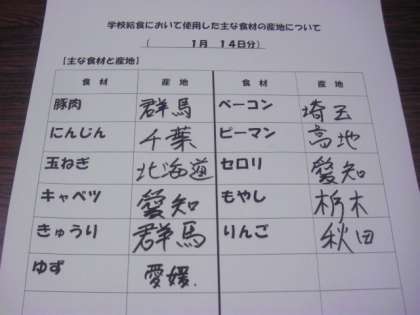 学校給食において使用した主な食材の産地について
( 1月 14日分)
[主な食材と産地]
食材 産地 食材 産地
豚肉 群馬 ベーコン 埼玉
にんじん 千葉 ピーマン 高地
玉ねぎ 北海道 セロリ 愛知
キャベツ 愛知 もやし 栃木
きゅうり 群馬 りんご 秋田
ゆず 愛媛